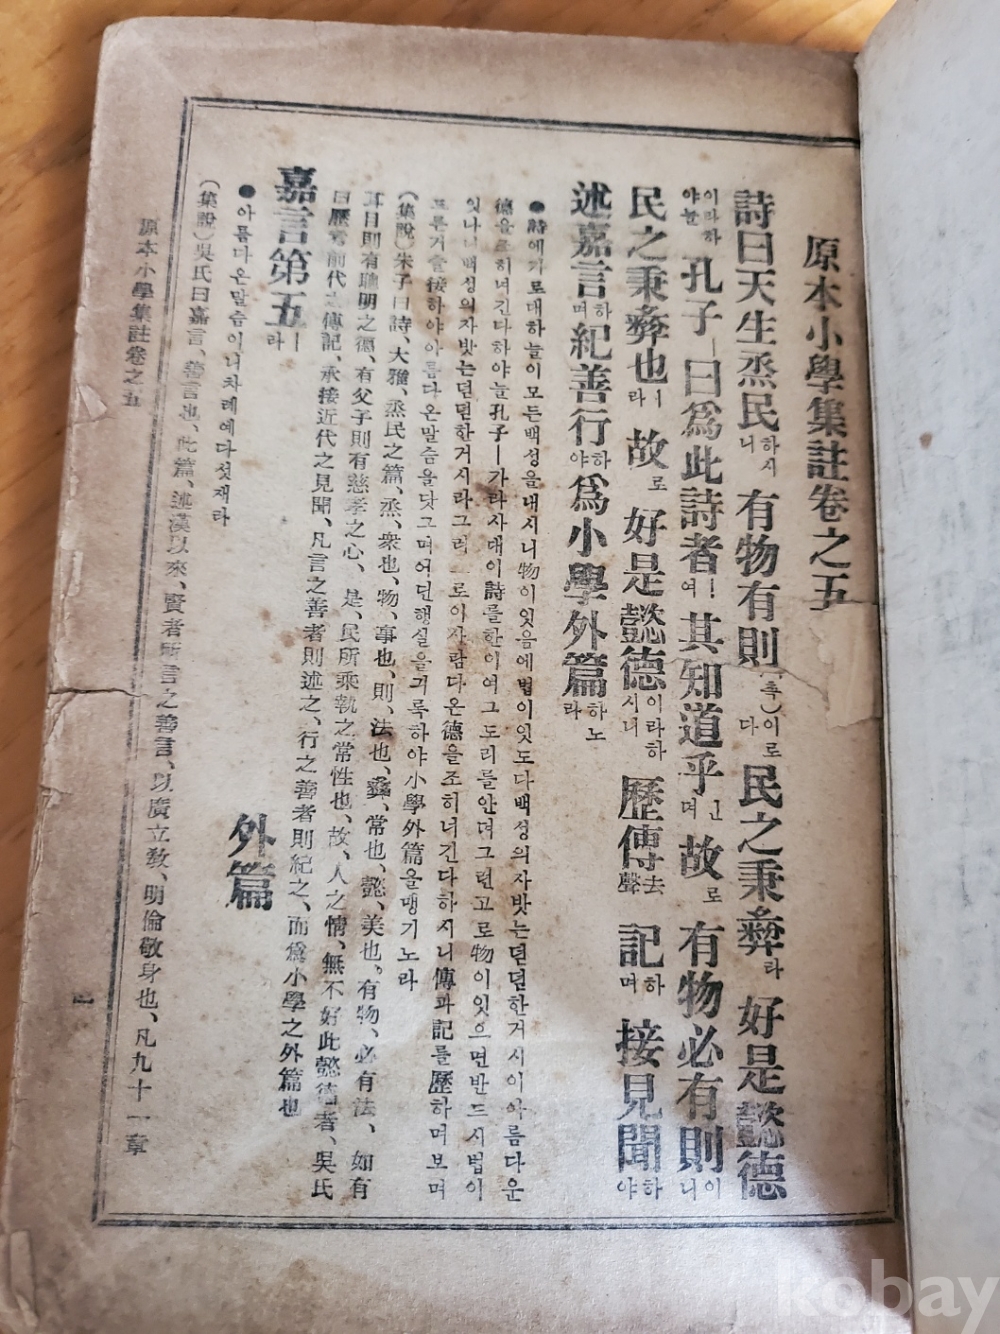 原本小學集註卷之五
詩曰天生烝民하시니有物有則(측)이로다民之秉彝라好是懿德
이라하야늘孔子ㅣ曰爲此詩者ㅣ여其知道乎ㅣㄴ며故로有物必有則이니
民之秉彝也ㅣ라故로好是懿德이라하시니歷傳去聲記하며接見聞하야
述嘉言하며紀善行하야爲小學外篇하노라
●詩에가로대하늘이모든백성을내시니物이잇음에법이잇도다백성의자밧는던던한거시이아름다운
德을죠히녀긴다하야늘孔子ㅣ가라사대이詩를한이여그도리를안뎌그런고로物이잇으면반드시법이
잇나니백성의자밧는던던한거시라그러로이아람다온德을조히녀긴다하시니傳과記를歷하며보며
드른거슬接하야아름다온말슴을닷그며어딘행실을긔록하야小學外篇을맹기노라
(集說)朱子曰詩、大雅、烝民之篇、烝、衆也、物、事也、則、法也、彝、常也、懿、美也、有物、必有法、如有
耳目則有聰明之德、有父子則有慈孝之心、是、民所秉執之常性也、故、人之情、無不好此懿德者、吳氏
曰歷考前代之傳記、承接近代之見聞、凡言之善者則述之、行之善者則紀之、而爲小學之外篇也
嘉言第五ㅣ라
外篇
●아름다온말슴이니차례에다섯재라
(集說)吳氏曰嘉言、善言也、此篇、述漢以來、賢者所言之善言、以廣立敎、明倫敬身也、凡九十一章
原本小學集註卷之五